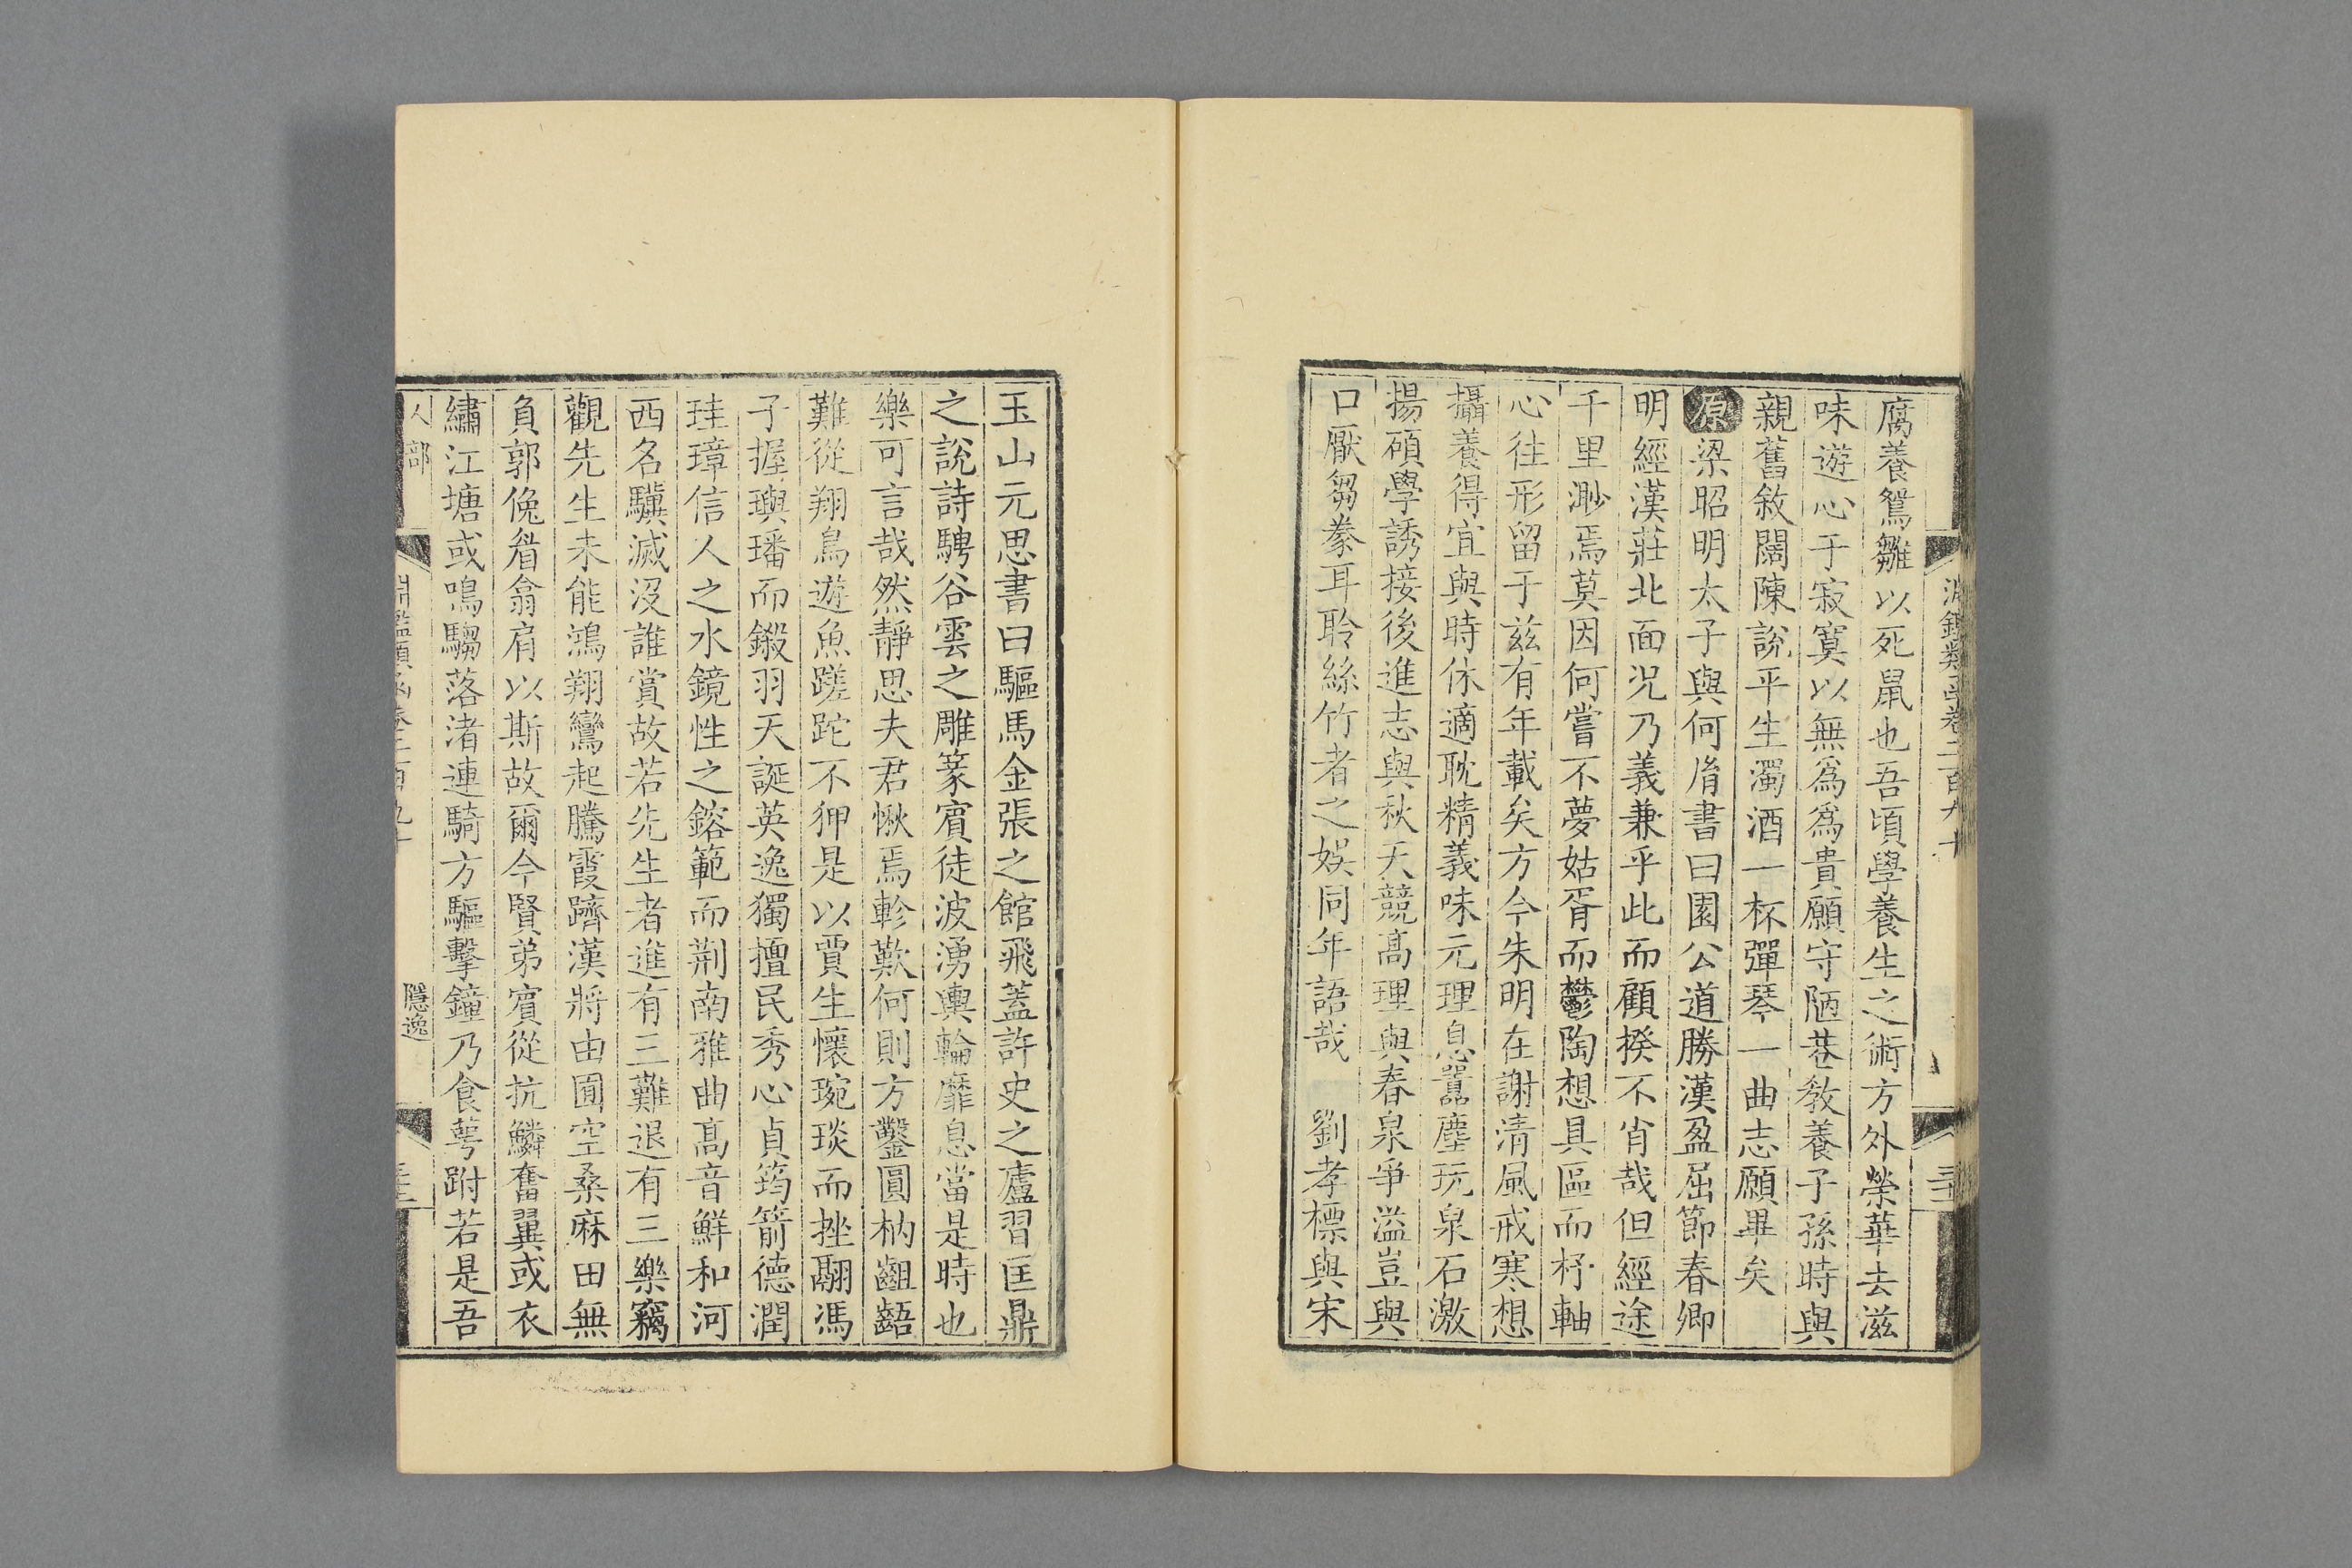 淵鑑類函卷二百九十
腐養鴛雛以死鼠也吾頃學養生之術方外榮華去滋
味遊心于寂寞以無爲爲貴願守陋巷敎養子孫時與
親舊敘闊陳說平生濁酒一杯彈琴一曲志願畢矣
原梁昭明太子與何胤書曰園公道勝漢盈屈節春卿
明經漢莊北面況乃義兼乎此而顧揆不肖哉但經途
千里渺焉莫因何嘗不夢姑胥而鬱陶想具區而杼軸
心往形留于兹有年載矣方今朱明在謝清風戒寒想
攝養得宜與時休適耽精義味元理息囂塵玩泉石激
揚碩學誘接後進志與秋天競高理與春泉爭溢豈與
口厭芻豢耳聆絲竹者之娛同年語哉 劉孝標與宋
玉山元思書曰驅馬金張之館飛蓋許史之廬習匡鼎
之說詩騁谷雲之雕篆賓徒波湧輿輪靡息當是時也
樂可言哉然靜思夫君愀焉軫歎何則方鑿圓枘齟齬
難從翔鳥遊魚蹉跎不狎是以賈生懷琬琰而挫翮馮
子握璵璠而鎩羽天誕英逸獨擅民秀心貞筠箭德潤
珪璋信人之水鏡性之鎔範而荆南雅曲高音鮮和河
西名驥滅沒誰賞故若先生者進有三難退有三樂竊
觀先生未能鴻翔鸞起騰霞躋漢將由圃空桑麻田無
負郭俛眉翕肩以斯故爾今賢弟賓從抗鱗奮翼或衣
繡江塘或鳴騶落渚連騎方驅擊鐘乃食萼跗若是吾
人部 淵鑑類函卷二百九十 隱逸